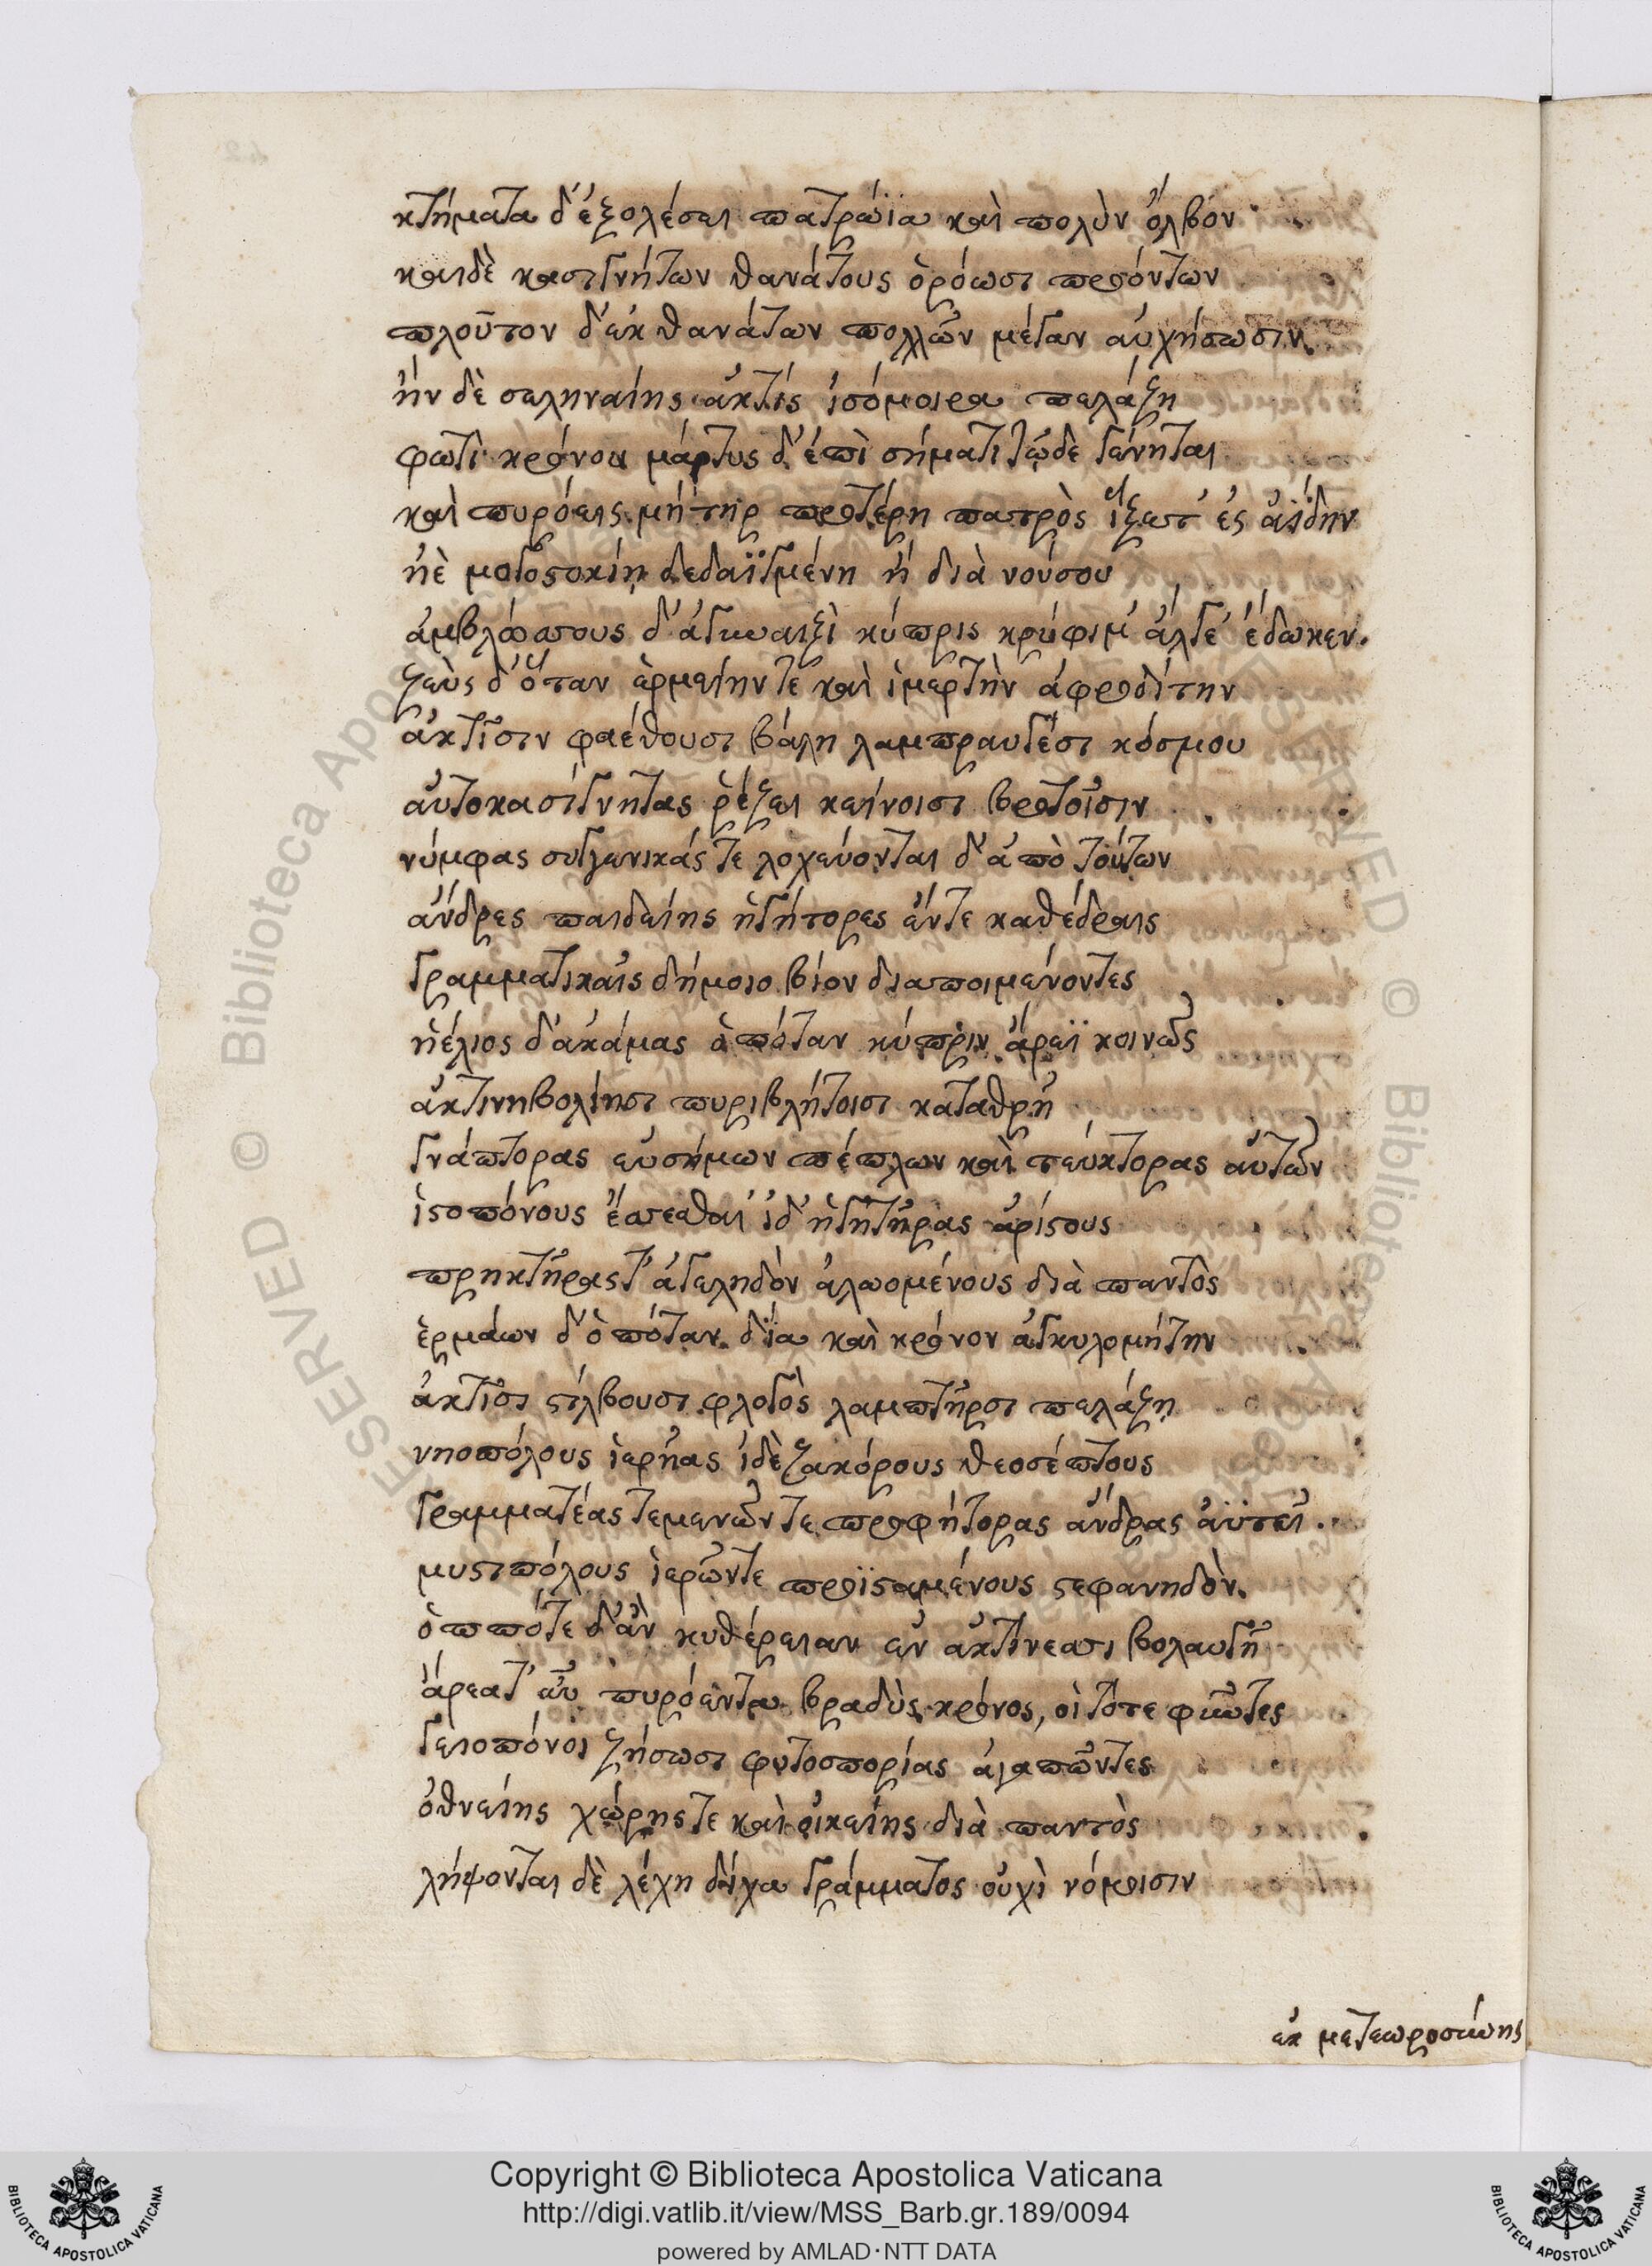 κτήματα δ' ἐξολέσει πατρώϊα καὶ πολὺν ὄλβον
καιδὲ κασιγνήτων θανάτους ὁρόωσι προόντων
πλοῦτον δ' ἐκ θανάτων πολλῶν μέγαν αὐχήσωσιν.
ἢν δὲ σεληναίης ἀκτὶς ἰσόμοιρα πελάζη
φωτὶ κρόνου μάρτυς δ' ἐπὶ σήματι τῷδε γένηται
καὶ πυρόεις μήτηρ προτέρη πατρὸς ἵξετ' ἐς ἀΐδην
ἠὲ μογοστοκίη δεδαϊγμένη ἢ διὰ νούσου
ἀμβλώπους δ' κύπρις κρύφιμ' ἄλγε' ἔδωκεν.
ζεὺς δ' ὅταν ἑρμείην τε καὶ ἱμερτὴν ἀφροδίτην
ἀκτῖσιν φαέθουσι βάλη λαμπραυγέσι κόσμου
αὐτοκασίγνητας ῥέξει κείνοισι βροτοῖσιν
νύμφας συγγενικάς τε λοχεύονται δ' ἀπὸ τούτων
ἄνδρες παιδείης ἡγήτορες ἔν τε καθέδραις
γραμματικαῖς δήμοιο βίον διαποιμένοντες
ἠέλιος δ' ἀκάμας ὁπόταν κύπριν ἄρεϊ κοινῶς
ἀκτινηβολίησι πυριβλήτοισι καταθρῇ
γνάπτορας εὐσήμων πέπλων καὶ τεύκτορας αὐτῶν
ἱστοπόνους ἔσεσθαι ἰδ' ἡγητῆρας ἀρίστους
πρηκτῆρας τ' ἀγεληδὸν ἀλωομένους διὰ παντὸς
ἑρμάων δ' ὁπόταν δία καὶ κρόνον ἀγκυλομήτην
ἀκτῖσι στίλβουσι φλογὸς λαμπτῆρσι πελάζη
νηοπόλους ἱερῆας ἰδὲ ζακόρους θεοσέπτους
γραμματέας τεμενῶν τε προφήτορας ἄνδρας ἀϋτεῖ.
μυστιπόλους ἱερῶν τε προϊσταμένους στεφανηδὸν.
ὁππότε δ' ἂν κυθέρειαν ἐν ἀκτίνεσσι βολαυγῇ
ἄρεα τ' αὖ πυρόεντα βραδὺς κρόνος, οἱ τότε φῶτες
γειοπόνοι ζήσωσι φυτοσπορίας ἀγαπῶντες
ὀθνείης χώρης τε καὶ οἰκείης διὰ παντὸς
λήψονται δὲ λέχη δίχα γράμματος οὐχὶ νόμοισιν
ἐκ μετεωροσύνης
Copyright © Biblioteca Apostolica Vaticana
http://digi.vatlib.it/view/MSS_Barb.gr.189/0094
powered by AMLAD·NTT DATA